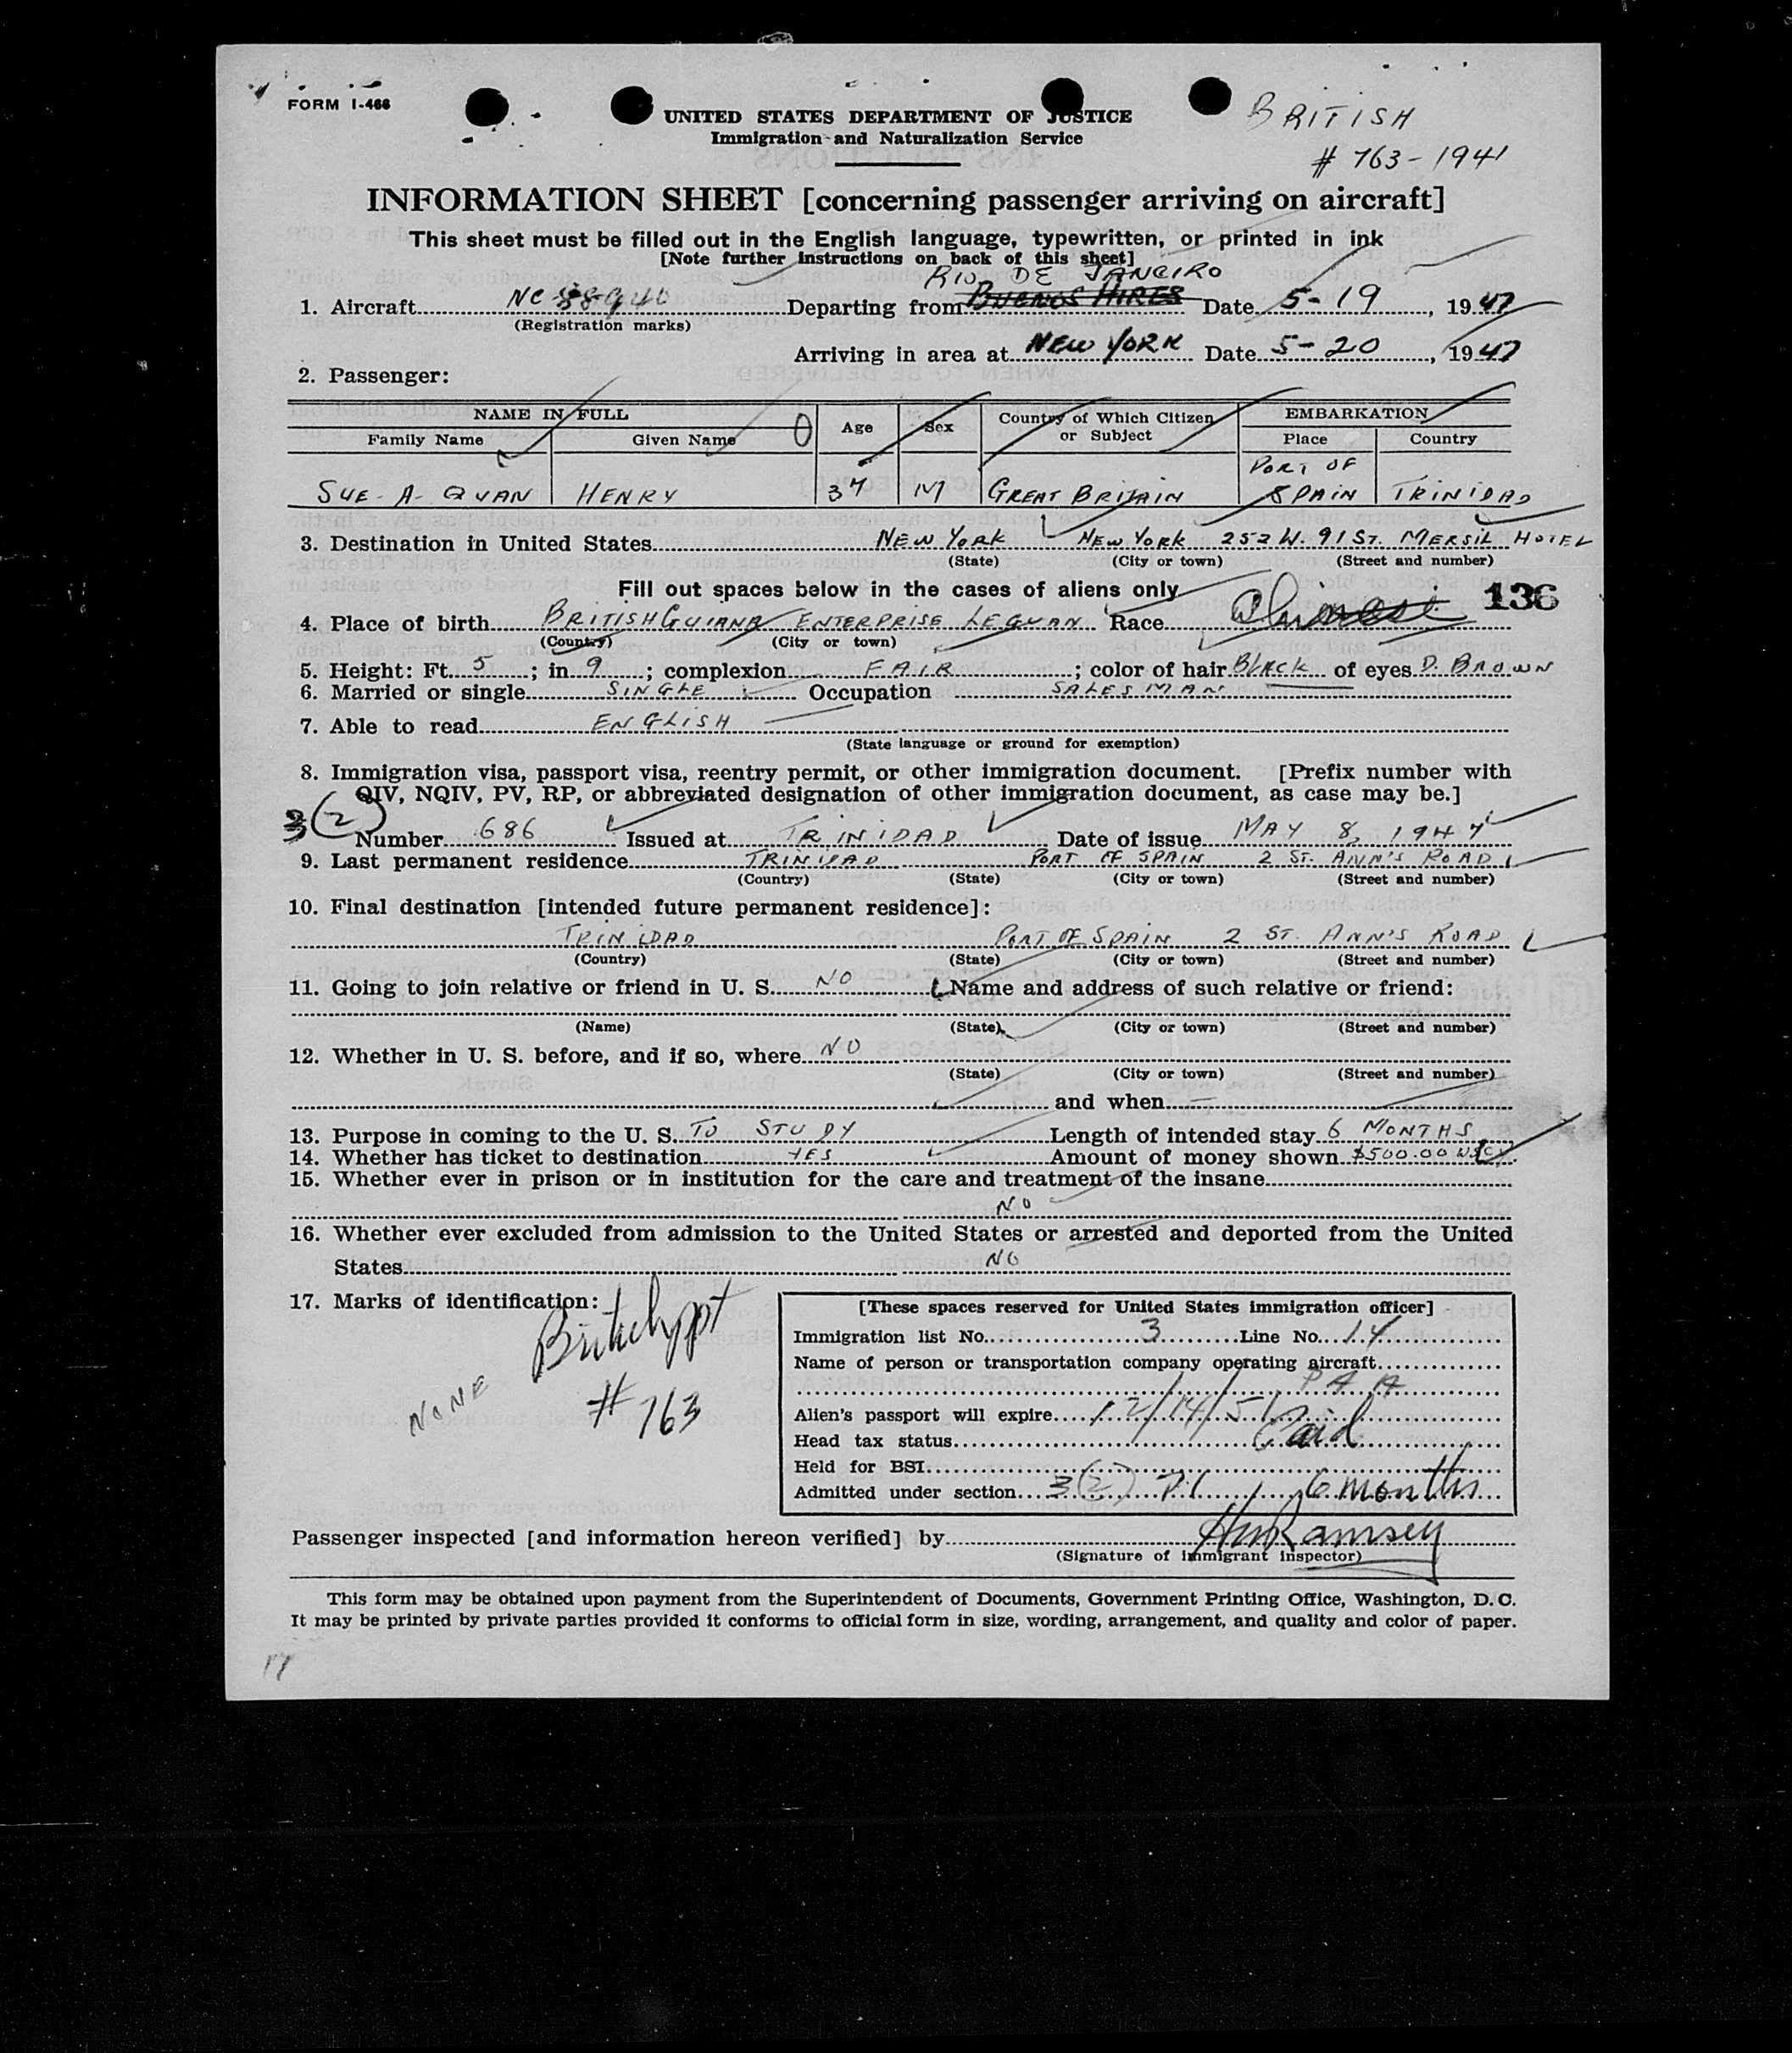 FORM I-466
UNITED STATES DEPARTMENT OF JUSTICE
Immigration and Naturalization Service
BRITISH
# 763-1941
INFORMATION SHEET [concerning passenger arriving on aircraft]
This sheet must be filled out in the English language, typewritten, or printed in ink
[Note further instructions on back of this sheet]
RIO DE JANEIRO
1. Aircraft NC 88940 Departing from BUENOS AIRES Date 5-19, 1947
(Registration marks)
Arriving in area at NEW YORK Date 5-20, 1947
2. Passenger:
NAME IN FULL Age Sex Country of Which Citizen or Subject EMBARKATION
Family Name Given Name Place Country
SUE-A-QUAN HENRY 37 M GREAT BRITAIN PORT OF SPAIN TRINIDAD
3. Destination in United States NEW YORK NEW YORK 252 W. 91 ST. MERSIL HOTEL
(State) (City or town) (Street and number)
Fill out spaces below in the cases of aliens only
136
4. Place of birth BRITISH GUIANA ENTERPRISE LEGUAN Race Chinese
(Country) (City or town)
5. Height: Ft. 5; in 9; complexion FAIR; color of hair BLACK of eyes D. BROWN
6. Married or single SINGLE Occupation SALESMAN
7. Able to read ENGLISH
(State language or ground for exemption)
8. Immigration visa, passport visa, reentry permit, or other immigration document. [Prefix number with
QIV, NQIV, PV, RP, or abbreviated designation of other immigration document, as case may be.]
3(2)
Number 686 Issued at TRINIDAD Date of issue MAY 8, 1947
9. Last permanent residence TRINIDAD PORT OF SPAIN 2 ST. ANN'S ROAD
(Country) (State) (City or town) (Street and number)
10. Final destination [intended future permanent residence]:
TRINIDAD PORT OF SPAIN 2 ST. ANN'S ROAD
(Country) (State) (City or town) (Street and number)
11. Going to join relative or friend in U. S. NO Name and address of such relative or friend:
(Name) (State) (City or town) (Street and number)
12. Whether in U. S. before, and if so, where NO
(State) (City or town) (Street and number)
and when —
13. Purpose in coming to the U. S. TO STUDY Length of intended stay 6 MONTHS
14. Whether has ticket to destination YES Amount of money shown $500.00
15. Whether ever in prison or in institution for the care and treatment of the insane
NO
16. Whether ever excluded from admission to the United States or arrested and deported from the United
States NO
17. Marks of identification:
British ppt
# 763
NONE
[These spaces reserved for United States immigration officer]
Immigration list No. 3 Line No. 14
Name of person or transportation company operating aircraft
P A A
Alien's passport will expire 12/14/51
Head tax status Paid
Held for BSI
Admitted under section 3(2) 6 months
Passenger inspected [and information hereon verified] by Ramsey
(Signature of immigrant inspector)
This form may be obtained upon payment from the Superintendent of Documents, Government Printing Office, Washington, D. C.
It may be printed by private parties provided it conforms to official form in size, wording, arrangement, and quality and color of paper.